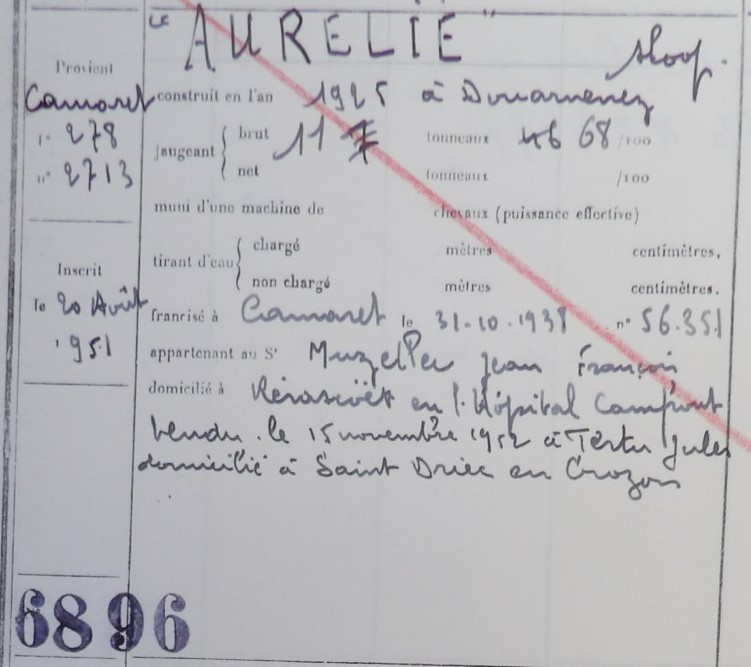 "AURELIE" sloop.
Provient
Camaret
f° 278
n° 2713
construit en l'an 1925 à Douarnenez
jaugeant { brut 11 tonneaux 68 /100
net tonneaux /100
muni d'une machine de chevaux (puissance effective)
tirant d'eau { chargé mètres centimètres.
non chargé mètres centimètres.
Inscrit
le 20 Août
1951
francisé à Camaret le 31-10-1938 n° 56.351
appartenant au Sr Muzellec Jean François
domicilié à en l'Hôpital Camfrout
Vendu le 15 novembre 1952 à Tertu Jules
domicilié à Saint Driec en Crozon
6896